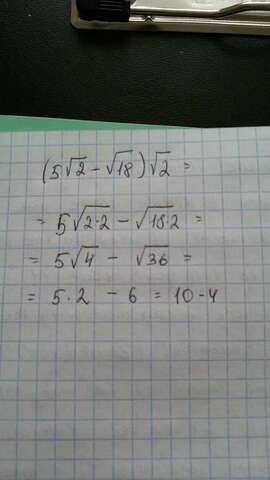 (5√2 - √18)√2 =
= 5√2·2 - √18·2 =
= 5√4 - √36 =
= 5·2 - 6 = 10-4